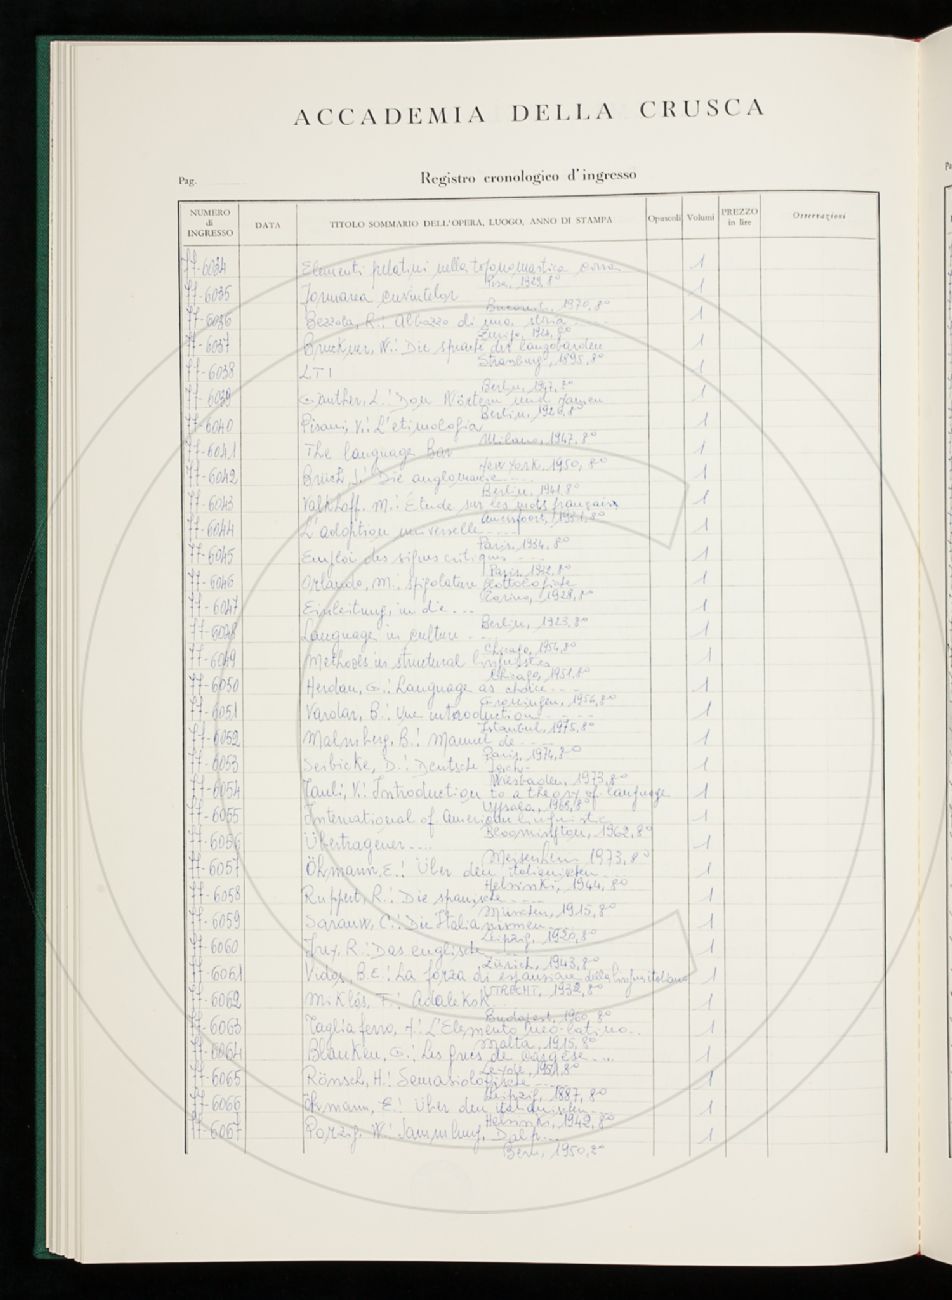 ACCADEMIA DELLA CRUSCA
Pag.
Registro cronologico d'ingresso
NUMERO di INGRESSO DATA TITOLO SOMMARIO DELL'OPERA, LUOGO, ANNO DI STAMPA Opuscoli Volumi PREZZO in lire Osservazioni
77-6034 Elementi prelatini nella toponomastica corsa 1
Pisa, 1929, 8°
77-6035 Formarea cuvintelor 1
Bucuresti, 1970, 8°
77-6036 Bezzola, R.: Abbozzo di una storia 1
Zurigo, 1924, 8°
77-6037 Bruckner, W.: Die sprache der langobarden 1
Strasburg, 1895, 8°
77-6038 LTI 1
Berlin, 1947, 8°
77-6039 Günther, L.: Von Wörtern und Namen 1
Berlin, 1926, 8°
77-6040 Pisani, V.: L'etimologia 1
Milano, 1947, 8°
77-6041 The language Bar 1
New York, 1950, 8°
77-6042 Brüch, J.: Die anglomanie.... 1
Berlin, 1941, 8°
77-6043 Valkhoff, M.: Étude sur les mots français 1
Amersfoort, 1931, 8°
77-6044 L'adoption universelle..... 1
Paris, 1934, 8°
77-6045 Emploi des signes critiques... 1
Paris, 1932, 8°
77-6046 Orlando, M.: Spigolature glottologiche 1
Torino, 1928, 8°
77-6047 Einleitung in die... 1
Berlin, 1923, 8°
77-6048 Language in culture.... 1
Chicago, 1954, 8°
77-6049 Methods in structural linguistics 1
Chicago, 1951, 8°
77-6050 Herdan, G.: Language as choice... 1
Groningen, 1956, 8°
77-6051 Vardar, B.: Une introduction..... 1
Istanbul, 1975, 8°
77-6052 Malmberg, B.: Manuel de.... 1
Paris, 1974, 8°
77-6053 Seibicke, D.: Deutsche 1
Wiesbaden, 1973, 8°
77-6054 Tauli, V.: Introduction to a theory of language 1
Uppsala, 1968, 8°
77-6055 International of American linguistic 1
Bloomington, 1962, 8°
77-6056 Übertragener.... 1
Meisenheim, 1973, 8°
77-6057 Öhmann, E.: Über den italienischen... 1
Helsinki, 1944, 8°
77-6058 Ruppert, R.: Die spanische.... 1
München, 1915, 8°
77-6059 Sarauw, C.: Die Italianismen... 1
Leipzig, 1920, 8°
77-6060 Frey, R.: Das englische 1
Zürich, 1943, 8°
77-6061 Vidos, B.E.: La forza di espansione della lingua italiana 1
UTRECHT, 1932, 8°
77-6062 Miklós, F.: Adalékok 1
Budapest, 1960, 8°
77-6063 Tagliaferro, A.: L'Elemento neo-latino.. 1
Malta, 1915, 8°
77-6064 Blanken, G.: Les grecs de Cargèse.... 1
Leyde, 1951, 8°
77-6065 Rönsch, H.: Semasiologische.... 1
Leipzig, 1887, 8°
77-6066 Öhmann, E.: Über den italienischen.. 1
Helsinki, 1942, 8°
77-6067 Porzig, W.: Sammlung Dalp... 1
Bern, 1950, 8°